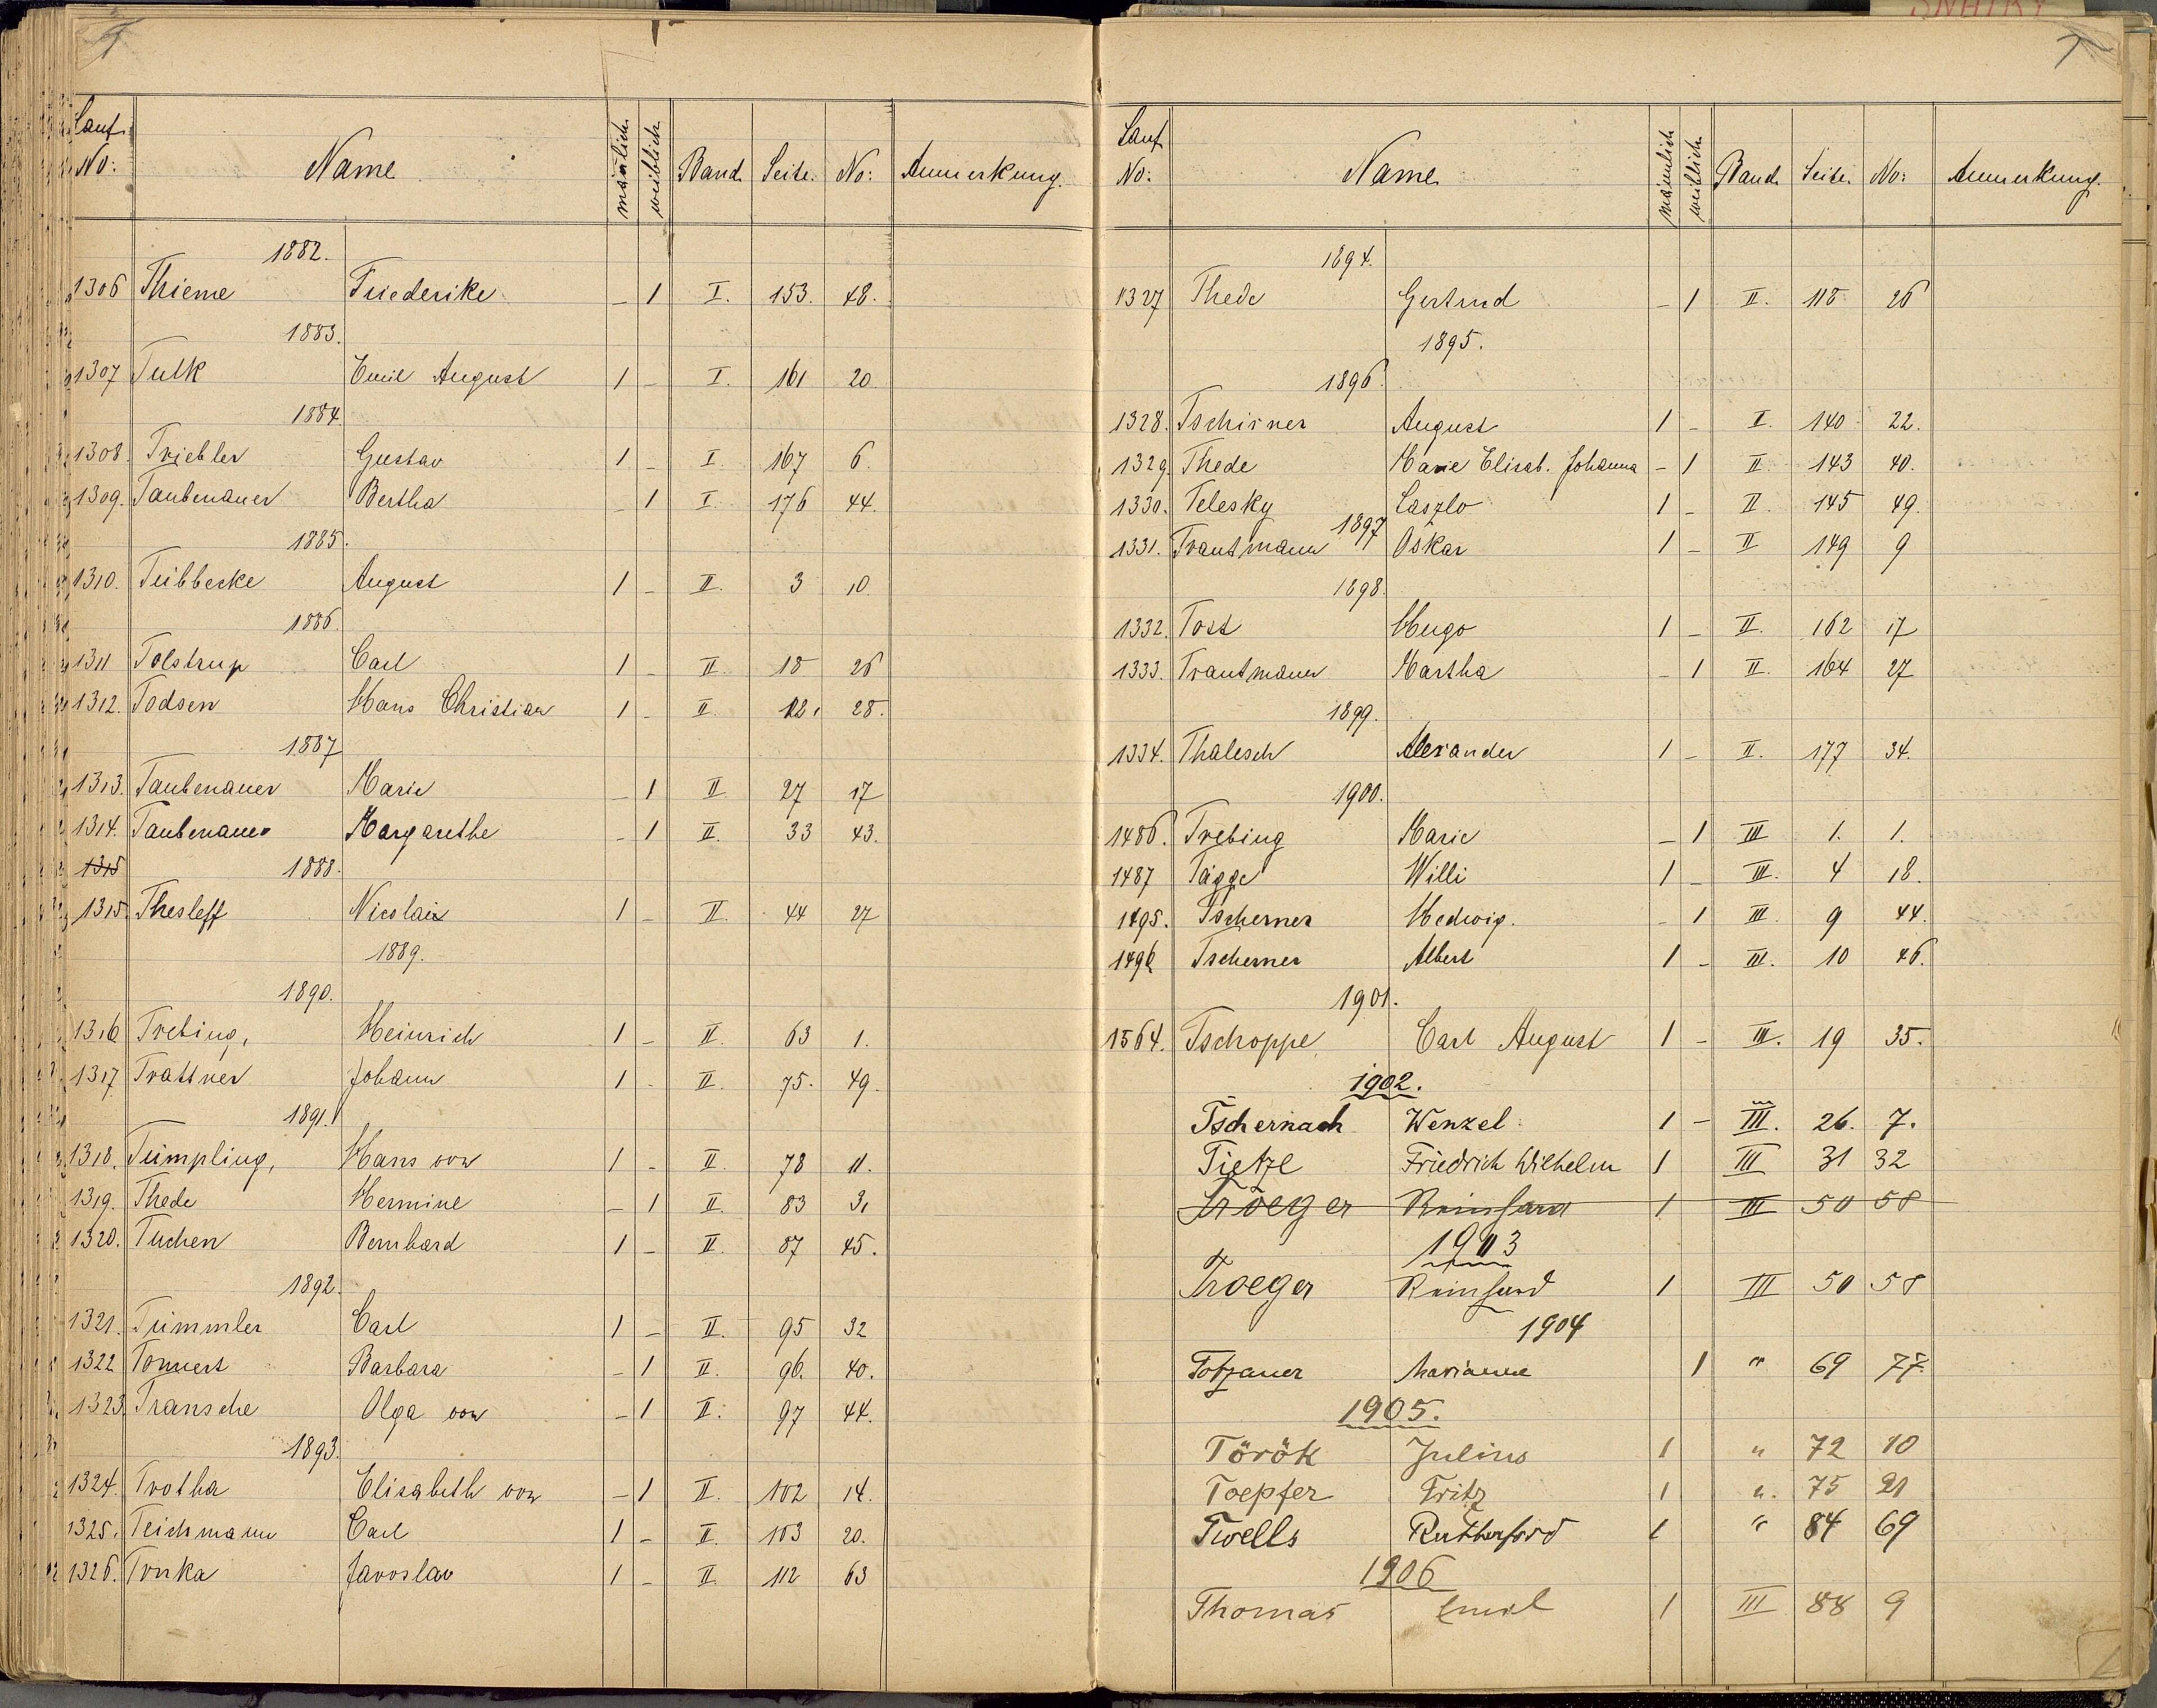 T
Lauf. No: Name mänlich weiblich Band Seite. No: Anmerkung.
1882.
1306 Thieme Friederike – 1 I. 153. 48.
1883.
1307 Tulk Emil August 1 – I. 161 20
1884.
1308. Triebler Gustav 1 – I. 167 6.
1309. Taubenauer Bertha – 1 I. 176 44.
1885.
1310. Tübbecke August 1 – II. 3 10.
1886.
1311 Tolstrup Carl 1 – II. 18 26
1312. Todsen Hans Christian 1 – II. 28.
1887
1313. Taubenauer Marie – 1 II. 27 17
1314. Taubenauer Margarethe – 1 II. 33 43.
1315 1888.
1315 Thesleff Nicolai 1 – II. 44 27
1889.
1890.
1316 Trebing, Heinrich 1 – II. 63 1.
1317 Trattner Johann 1 – II. 75. 49.
1891.
1318. Tümpling, Hans von 1 – II. 78 11.
1319. Thede Hermine – 1 II. 83 31
1320. Tuchen Bernhard 1 – II. 87 45.
1892.
1321. Tümmler Carl 1 – II. 95 32
1322 Tonnert Barbara – 1 II. 96. 40.
1323. Transche Olga von – 1 II. 97 44.
1893.
1324. Trotha Elisabeth von – 1 II. 102 14.
1325. Teichmann Carl 1 – II. 103 20.
1326. Trnka Jaroslav 1 – II. 112 63
T
Lauf No: Name mänlich weiblich Band Seite. No: Anmerkung.
1894.
1327 Thede Gertrud – 1 II. 118 26
1895.
1896.
1328. Tschirner August 1 – II. 140 22.
1329. Thede Marie Elisab. Johanna – 1 II. 143 40.
1330. Telesky Laszlo 1 – II. 145 49.
1897
1331. Trautmann Oskar 1 – II 149 9
1898.
1332. Tost Hugo 1 – II. 162 17
1333. Trautmann Martha – 1 II. 164 27
1899.
1334. Thalesch Alexander 1 – II. 177 34.
1900.
1486. Trebing Marie – 1 III 1. 1.
1487 Tägge Willi 1 – III. 4 18.
1495. Tscherner Hedwig. – 1 III. 9 44.
1496 Tscherner Albert 1 – III. 10 46.
1901.
1564. Tschoppe Carl August 1 – III. 19 35.
1902.
Tschernach Wenzel 1 – III. 26. 7.
Tietze Friedrich Wilhelm 1 III 31 32
Troeger Reinhard 1 III 50 58
1903
Troeger Reinhard 1 III 50 58
1904
Totzauer Marianne 1 " 69 77.
1905.
Török Julius 1 " 72 10
Toepfer Fritz 1 ". 75 21
Twells Rutherford 1 " 84 69
1906
Thomas Emil 1 III 88 9